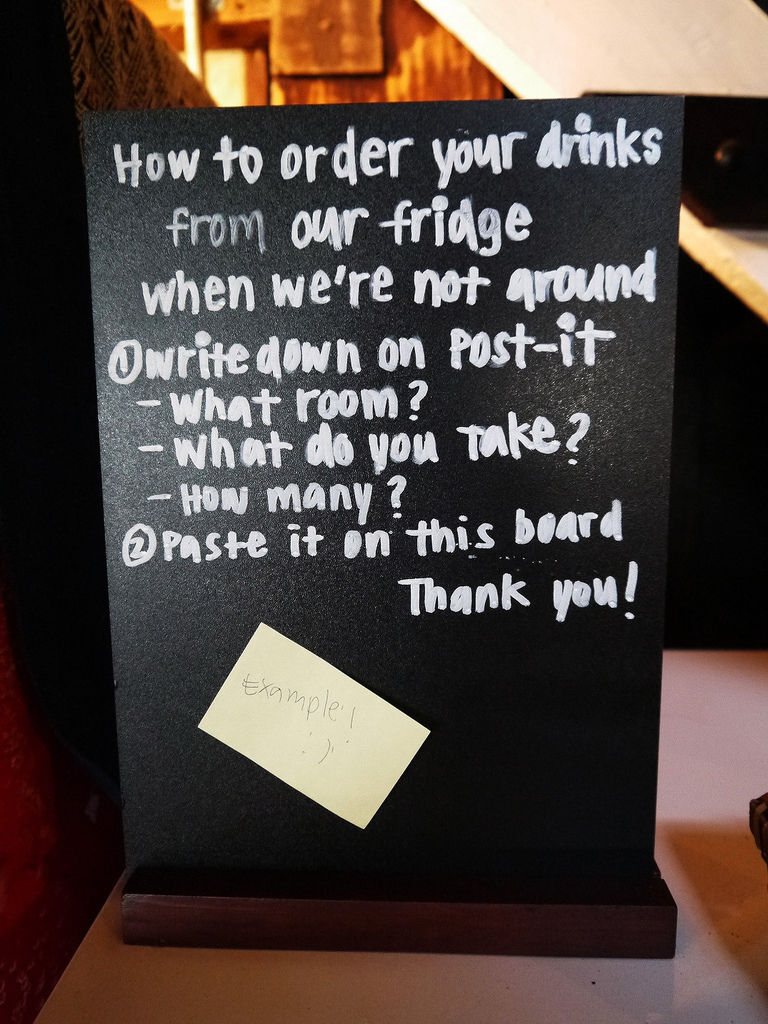 How to order your drinks
from our fridge
when we're not around
① write down on Post-it
- What room?
- What do you Take?
- How many?
② Paste it on this board
Thank you!
Example!
:)